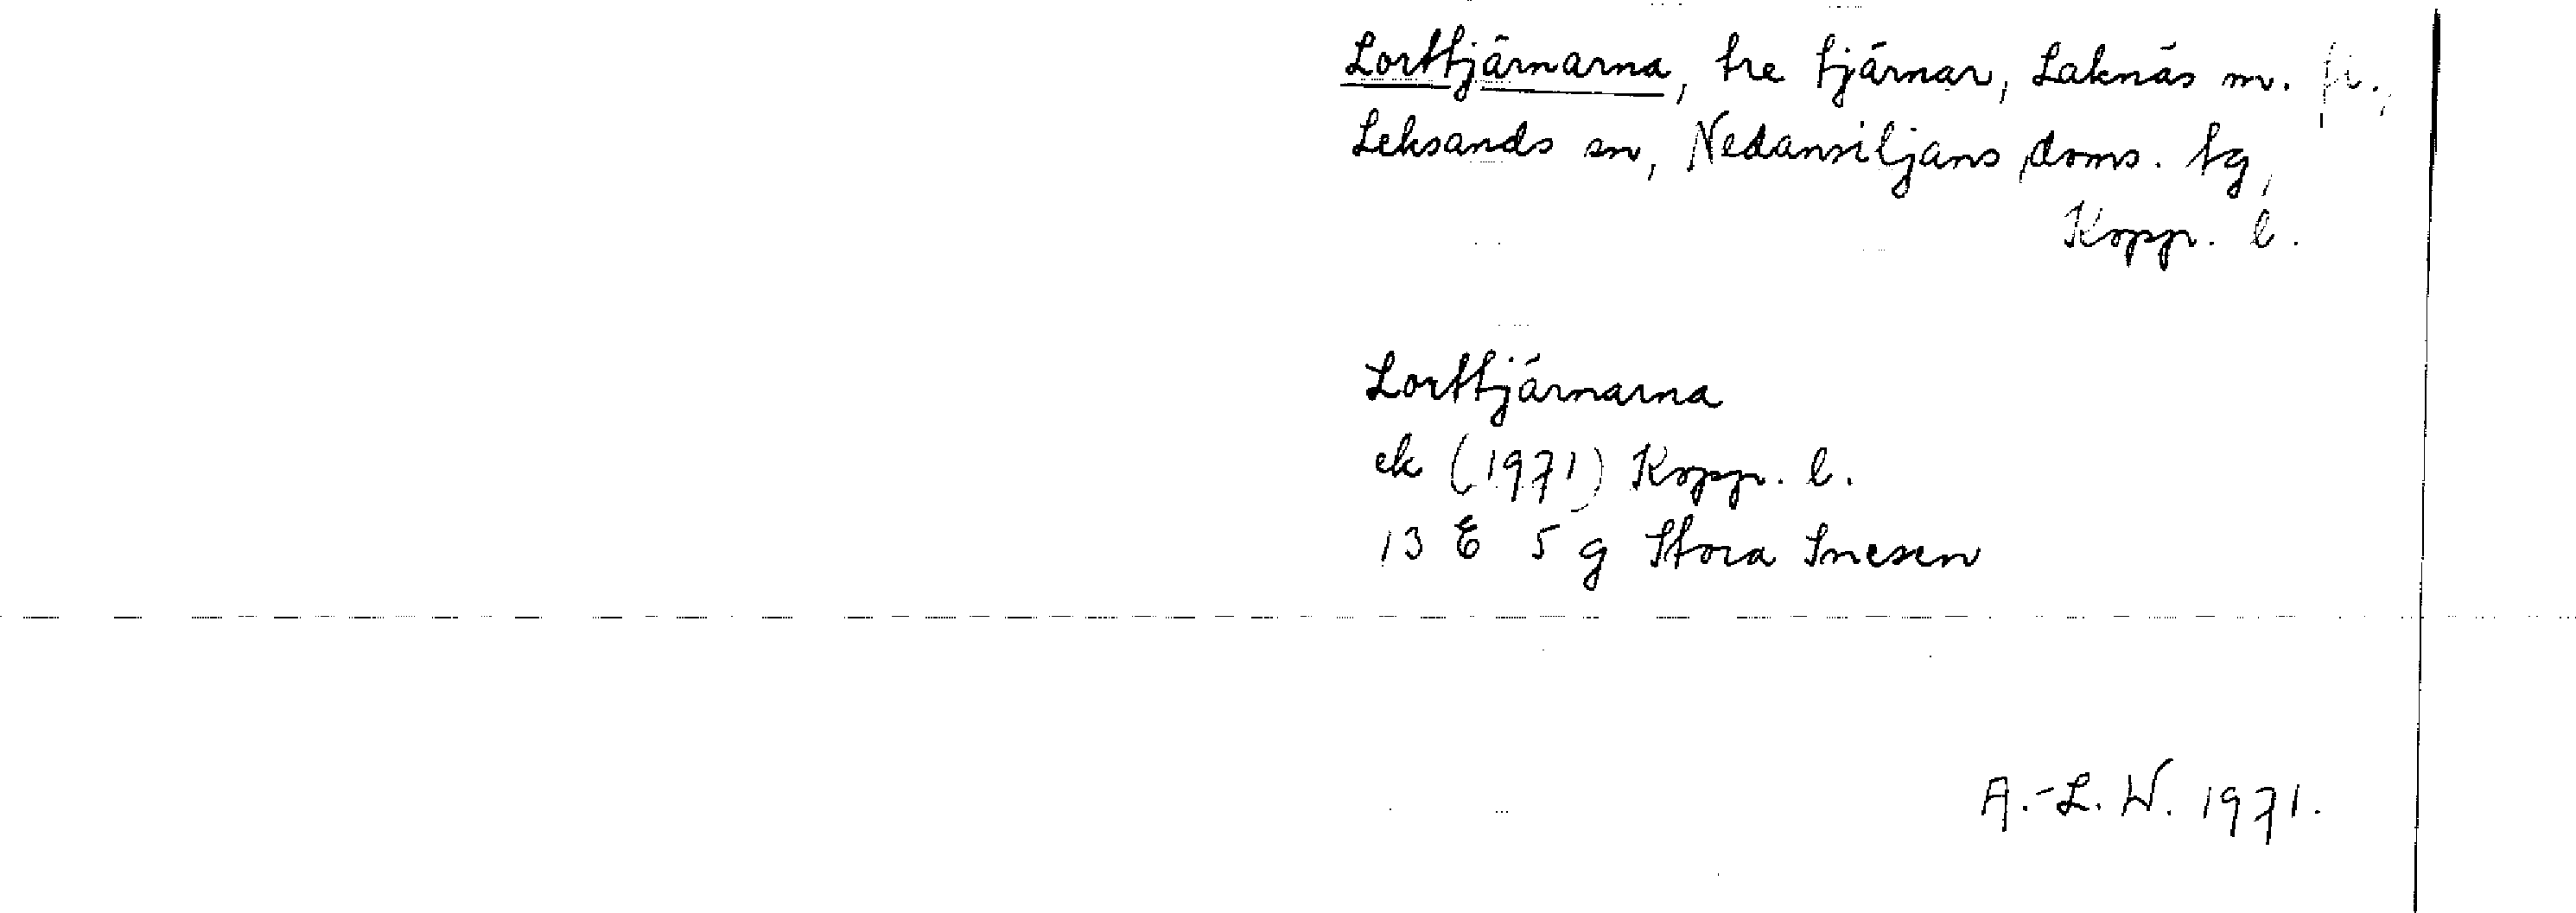 Lorttjärnarna, tre tjärnar, Laknäs m. fl.,
Leksands sn, Nedansiljans doms. tg,
Kopp. l.
Lorttjärnarna
ek (1971) Kopp. l.
13 E 5 g Stora Snesen
A.-L. W. 1971.